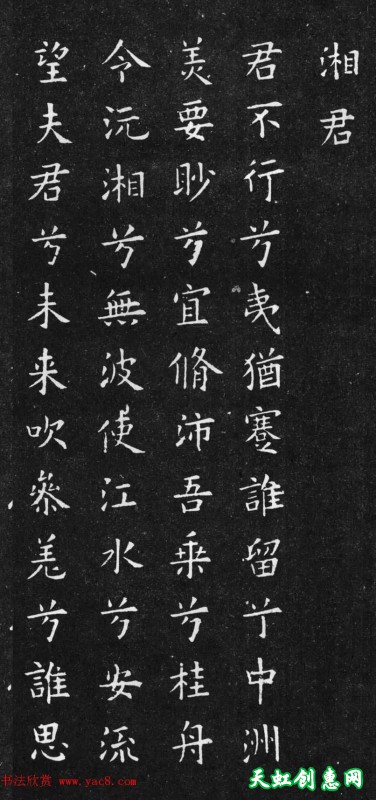 湘君
君不行兮夷猶蹇誰留兮中洲
美要眇兮宜脩沛吾乗兮桂舟
令沅湘兮無波使江水兮安流
望夫君兮未来吹參差兮誰思
书法欣赏 www.yac8.com
天虹创惠网